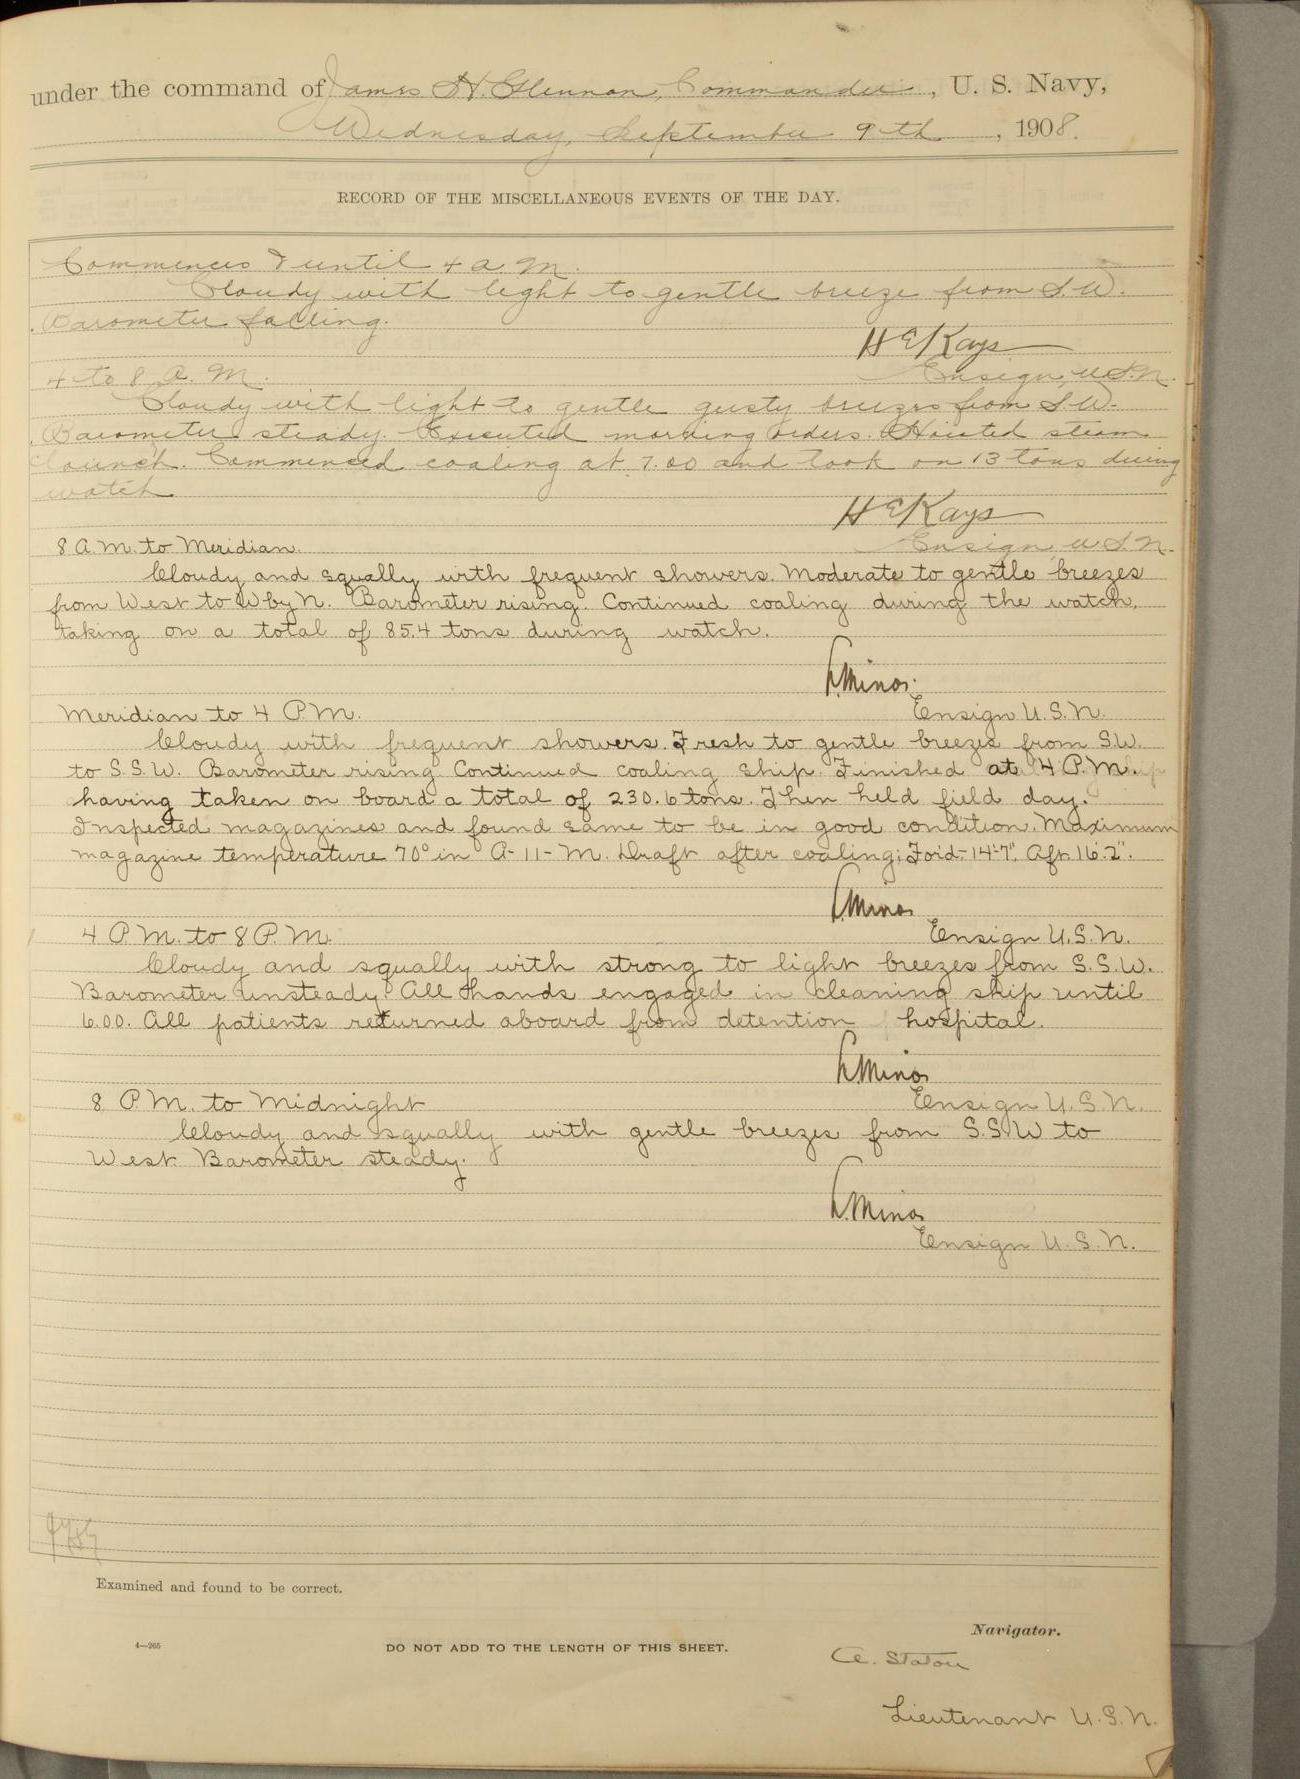 under the command of James H. Glennon, Commander, U. S. Navy,
Wednesday, September 9th, 1908.
RECORD OF THE MISCELLANEOUS EVENTS OF THE DAY.
Commences & until 4 a. m.
Cloudy with light to gentle breeze from S.W.
Barometer falling.
H E Kays
4 to 8 A. M.
Ensign, U.S.N.
Cloudy with light to gentle gusty breezes from S.W.
Barometer steady. Executed morning orders. Hoisted steam
launch. Commenced coaling at 7.00 and took on 13 tons during
watch
H E Kays
8 A.M. to Meridian.
Ensign, U.S.N.
Cloudy and squally with frequent showers. Moderate to gentle breezes
from West to W by N. Barometer rising. Continued coaling during the watch,
taking on a total of 85.4 tons during watch.
L. Minor.
Meridian to 4 P.M.
Ensign U.S.N.
Cloudy with frequent showers. Fresh to gentle breezes from S.W.
to S.S.W. Barometer rising. Continued coaling ship. Finished at 4 P.M.
having taken on board a total of 230.6 tons. Then held field day.
Inspected magazines and found same to be in good condition. Maximum
magazine temperature 70° in A-11-M. Draft after coaling; For'd.-14'-7", Aft. 16'.2".
L. Minor
4 P.M. to 8 P.M.
Ensign U.S.N.
Cloudy and squally with strong to light breezes from S.S.W.
Barometer unsteady. All hands engaged in cleaning ship until
6.00. All patients returned aboard from detention hospital.
L. Minor
8 P.M. to Midnight
Ensign U.S.N.
Cloudy and squally with gentle breezes from S.S.W to
West. Barometer steady.
L. Minor
Ensign U.S.N.
Examined and found to be correct.
Navigator.
4—265
DO NOT ADD TO THE LENGTH OF THIS SHEET.
A. Staton
Lieutenant U.S.N.